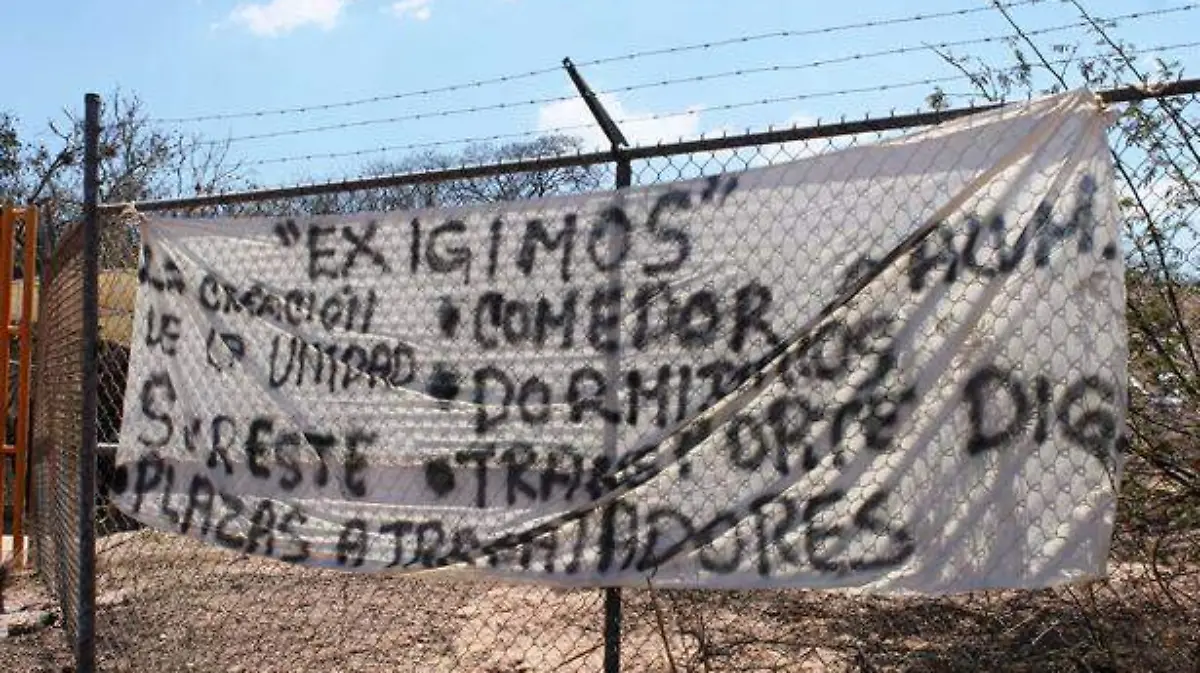 "EXIGIMOS"
LA CREACIÓN
DE LA UNIDAD
SURESTE
• COMEDOR ALUM.
• DORMITORIOS
• TRANSPORTE DIG.
• PLAZAS A TRABAJADORES